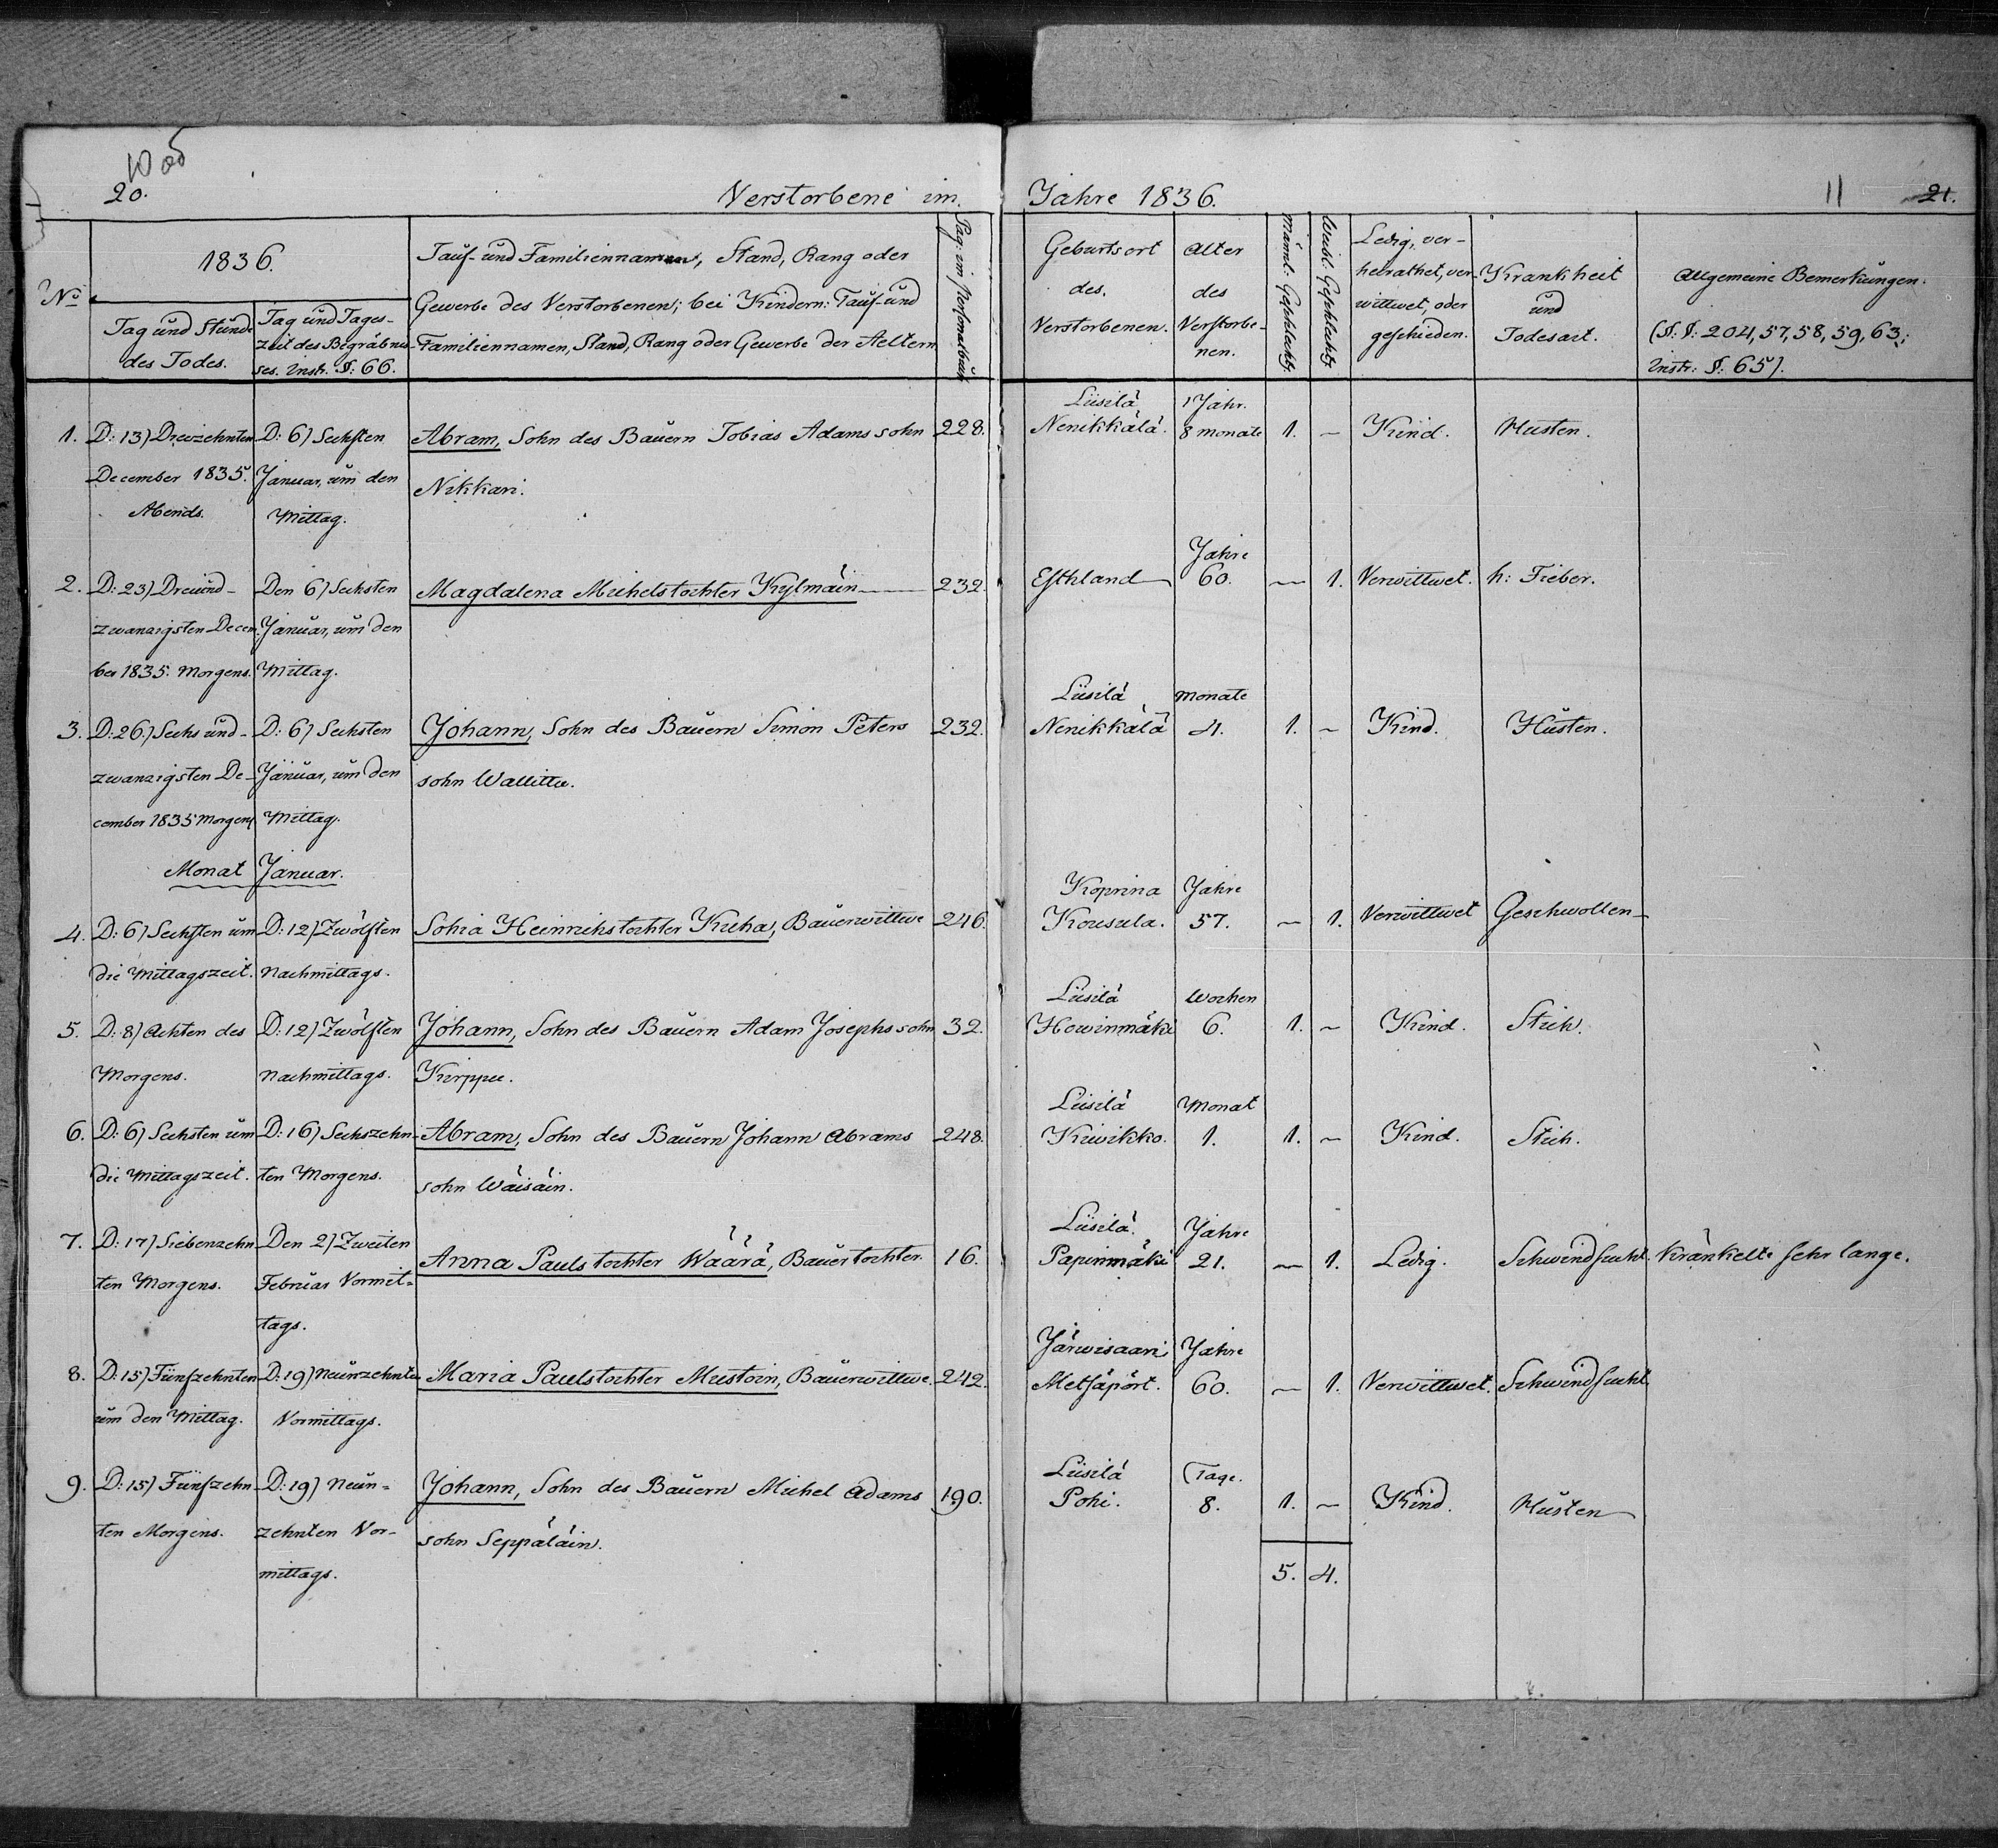 10 об
20.
Verstorbene im
Jahre 1836.
11
21.
No
1836.
Tag und Stunde
des Todes.
Tag und Tages-
zeit des Begräbnis-
ses. Instr. §: 66.
Tauf- und Familiennamen, Stand, Rang oder
Gewerbe des Verstorbenen; bei Kindern: Tauf- und
Familiennamen, Stand, Rang oder Gewerbe der Aeltern
Pag. im Personalbuch
Geburtsort
des
Verstorbenen.
Alter
des
Verstorbe-
nen.
Männl: Geschlechts
Weibl: Geschlechts
Ledig, ver-
heirathet, ver-
wittwet, oder
geschieden.
Krankheit
und
Todesart.
Allgemeine Bemerkungen.
(§: §: 204, 57, 58, 59, 63;
Instr: §: 65).
1. D: 13) Dreizehnten D: 6) Sechsten Abram, Sohn des Bauern Tobias Adams sohn 228.
December 1835. Januar, um den Nikkari.
Abends. Mittag.
Liisilä 1 Jahr.
Nenikkälä. 8 Monate 1. – Kind. Husten.
2. D: 23) Dreiund- Den 6) Sechsten Magdalena Michelstochter Kylmäin 232.
zwanzigsten Decem Januar, um den
ber 1835. Morgens. Mittag.
Jahre
Esthland 60. – 1. Verwittwet. h: Fieber.
3. D: 26.) Sechs und- D: 6) Sechsten Johann, Sohn des Bauern Simon Peters 232.
zwanzigsten De- Januar, um den sohn Wallittu.
cember 1835 Morgens Mittag.
Liisilä Monate
Nenikkälä 4. 1. – Kind. Husten.
Monat Januar.
4. D: 6) Sechsten um D: 12) Zwölften Sohia Heinrichstochter Kuha, Bauerwittwe 246.
die Mittagszeit. Nachmittags.
Koprina Jahre
Kousula. 57. – 1. Verwittwet Geschwollen
5. D: 8) Achten des D: 12) Zwölften Johann, Sohn des Bauern Adam Josephs sohn 32.
Morgens. Nachmittags. Kirppu.
Liisilä Wochen
Howinmäki 6. 1. – Kind. Stich.
6. D: 6) Sechsten um D: 16) Sechszehn- Abram, Sohn des Bauern Johann Abrams 248.
die Mittagszeit. ten Morgens. sohn Wäisäin.
Liisilä Monat
Kiwikko. 1. 1. – Kind. Stich.
7. D: 17) Siebenzehn Den 2) Zweiten Anna Pauls tochter Wäärä, Bauertochter. 16.
ten Morgens. Februar Vormit-
tags.
Liisilä. Jahre
Papinmäki 21. – 1. Ledig. Schwindsucht. Kränkelte sehr lange.
8. D: 15) Fünfzehnten D: 19) Neunzehnten Maria Paulstochter Mustoin, Bauerwittwe. 242.
um den Mittag. Vormittags.
Järwisaari Jahre
Metsäpört. 60. – 1. Verwittwet. Schwindsucht
9. D: 15) Fünfzehn D: 19) Neun- Johann, Sohn des Bauern Michel Adams 190.
ten Morgens. zehnten Vor- sohn Seppäläin.
mittags.
Liisilä Tage.
Pohi. 8. 1. – Kind. Husten
5. 4.